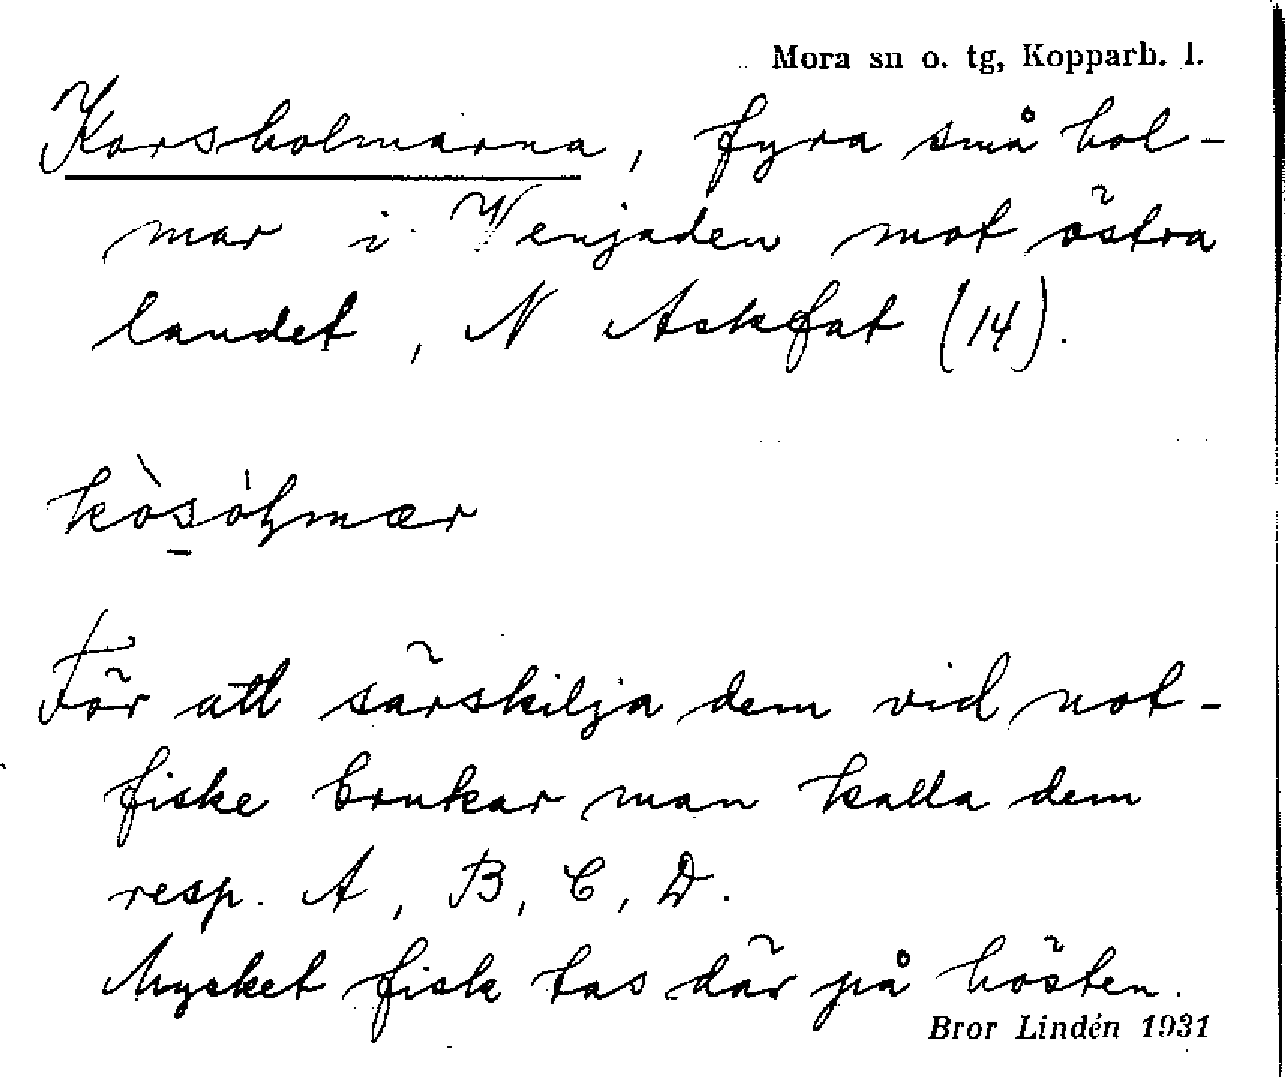 Mora sn o. tg, Kopparb. l.
Korsholmarna, fyra små hol-
mar i Venjaden mot östra
landet, N Askfat (14).
kòsòḷmær
För att särskilja dem vid not-
fiske brukar man kalla dem
resp. A, B, C, D.
Mycket fisk tas där på hösten.
Bror Lindén 1931